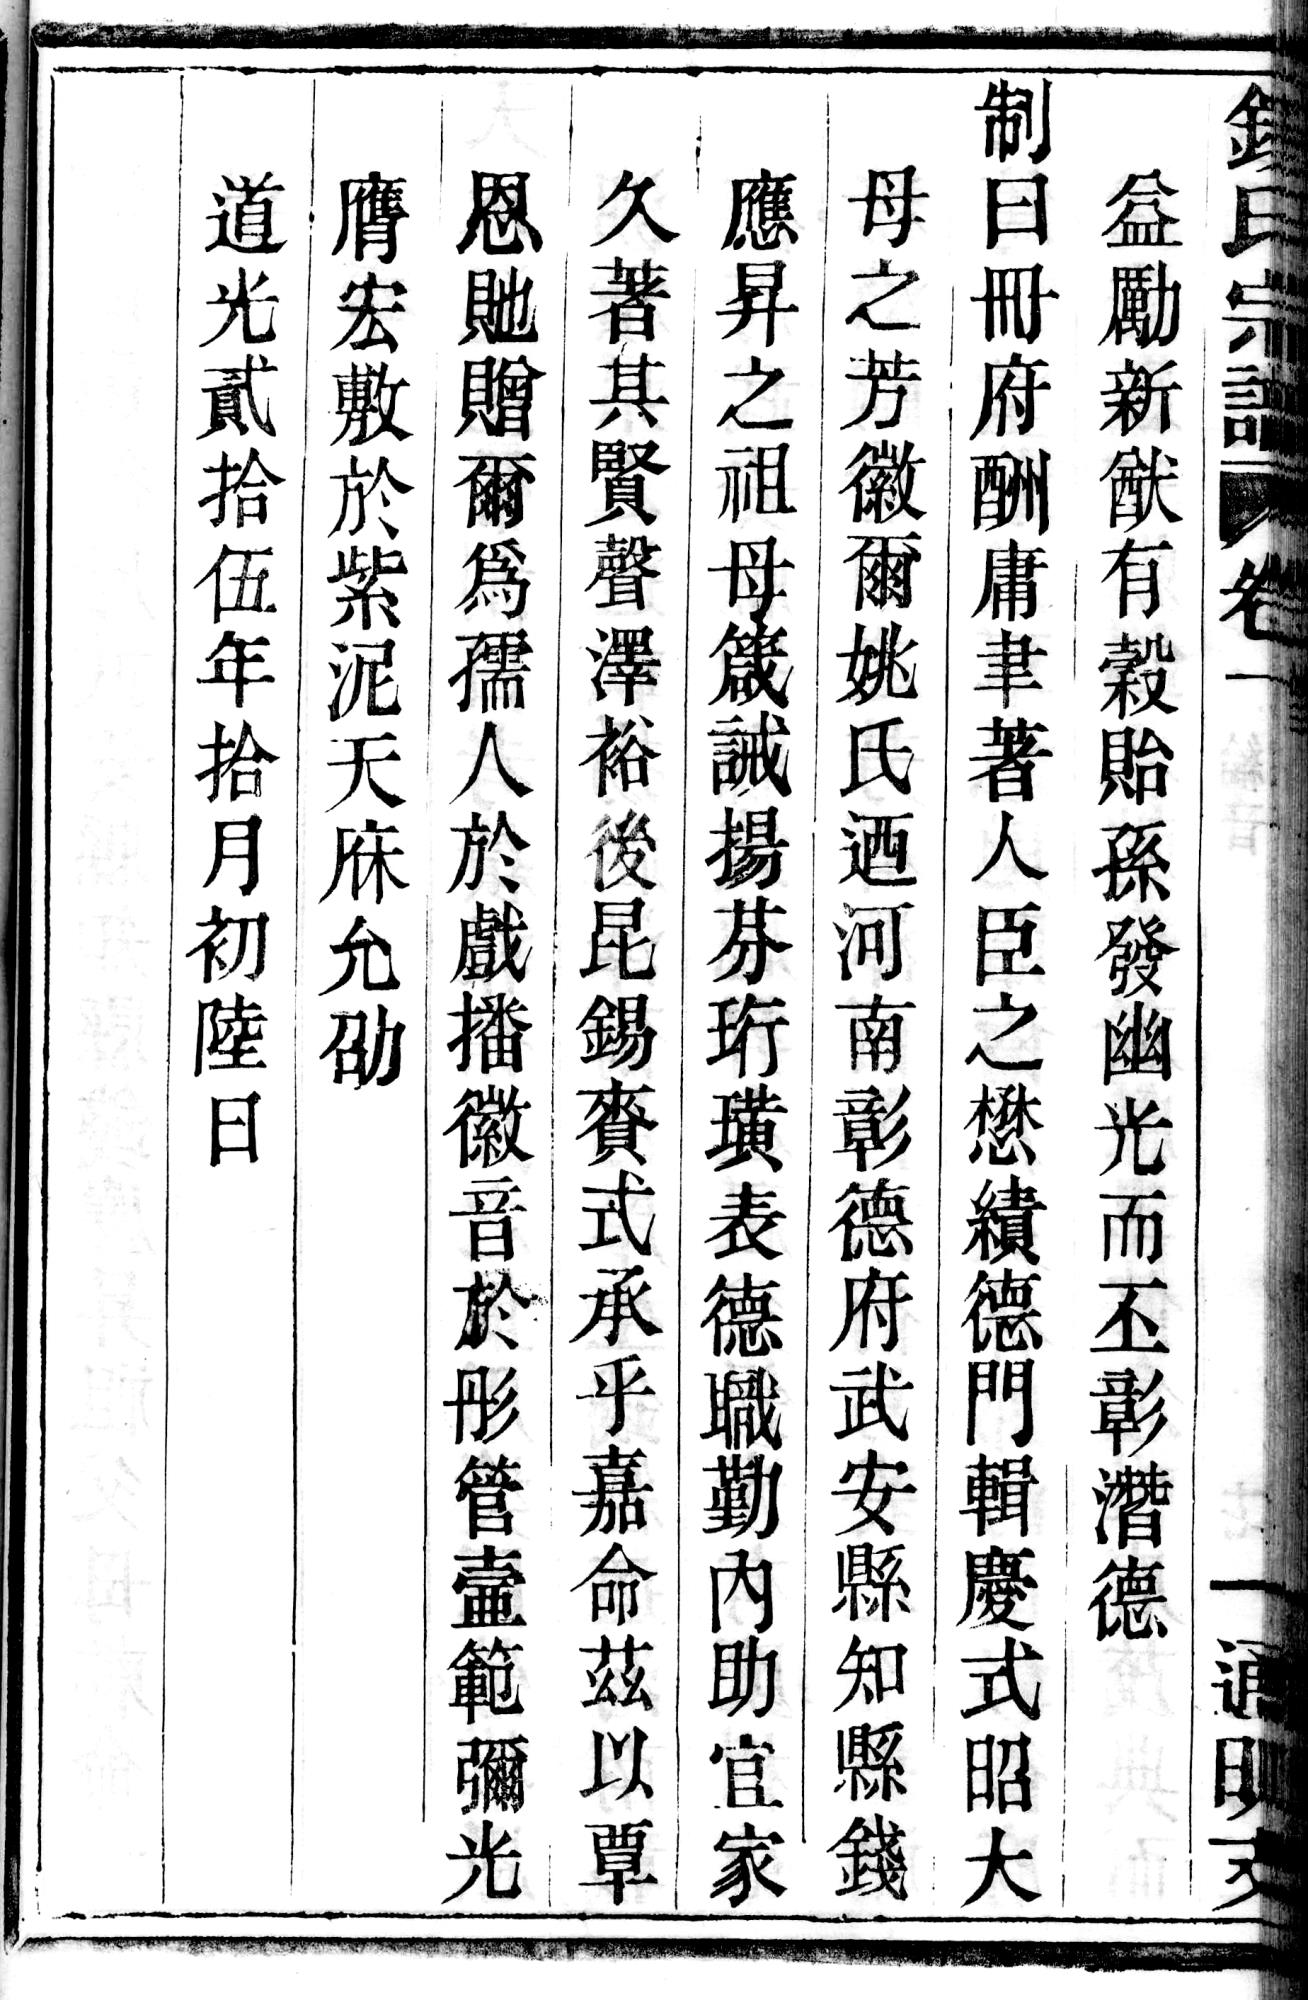 錢氏宗譜 卷一 通明支
益勵新猷有穀貽孫發幽光而丕彰潛德
制曰冊府酬庸聿著人臣之懋績德門輯慶式昭大
母之芳徽爾姚氏迺河南彰德府武安縣知縣錢
應昇之祖母箴誡揚芬珩璜表德職勤內助宜家
久著其賢聲澤裕後昆錫賚式承乎嘉命茲以覃
恩貤贈爾為孺人於戲播徽音於彤管壼範彌光
膺宏敷於紫泥天庥允劭
道光貳拾伍年拾月初陸日